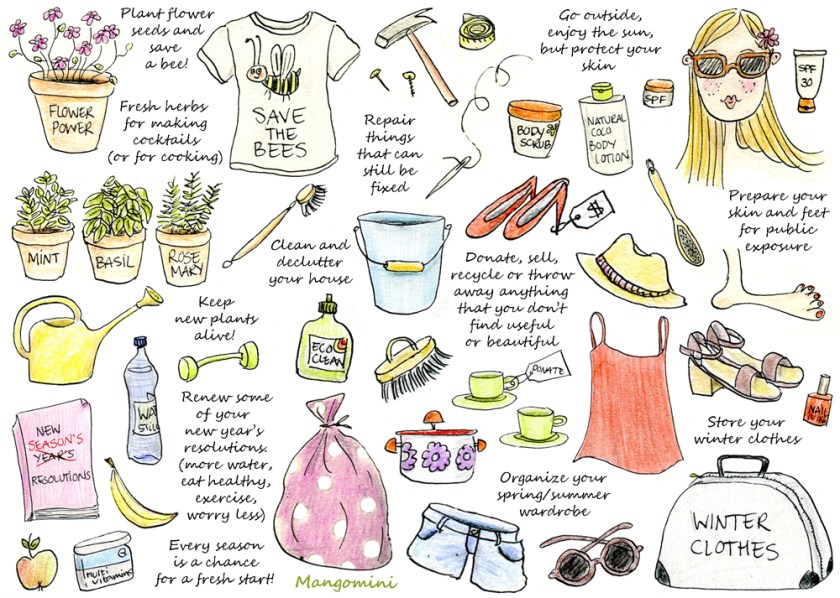 Plant flower
seeds and
save
a bee!
FLOWER
POWER
SAVE
THE
BEES
Fresh herbs
for making
cocktails
(or for cooking)
MINT
BASIL
ROSE
MARY
Repair
things
that can
still be
fixed
Go outside,
enjoy the sun,
but protect your
skin
SPF
30
SPF
BODY
SCRUB
NATURAL
COCO
BODY
LOTION
Prepare your
skin and feet
for public
exposure
Clean and
declutter
your house
$
Donate, sell,
recycle or throw
away anything
that you don't
find useful
or beautiful
Keep
new plants
alive!
ECO
CLEAN
DONATE
NEW
SEASON'S
YEAR'S
RESOLUTIONS
Renew some
of your
new year's
resolutions.
(more water,
eat healthy,
exercise,
worry less)
Store your
winter clothes
Organize your
spring/summer
wardrobe
WINTER
CLOTHES
multi
vitamins
Every season
is a chance
for a fresh start!
Mangomini